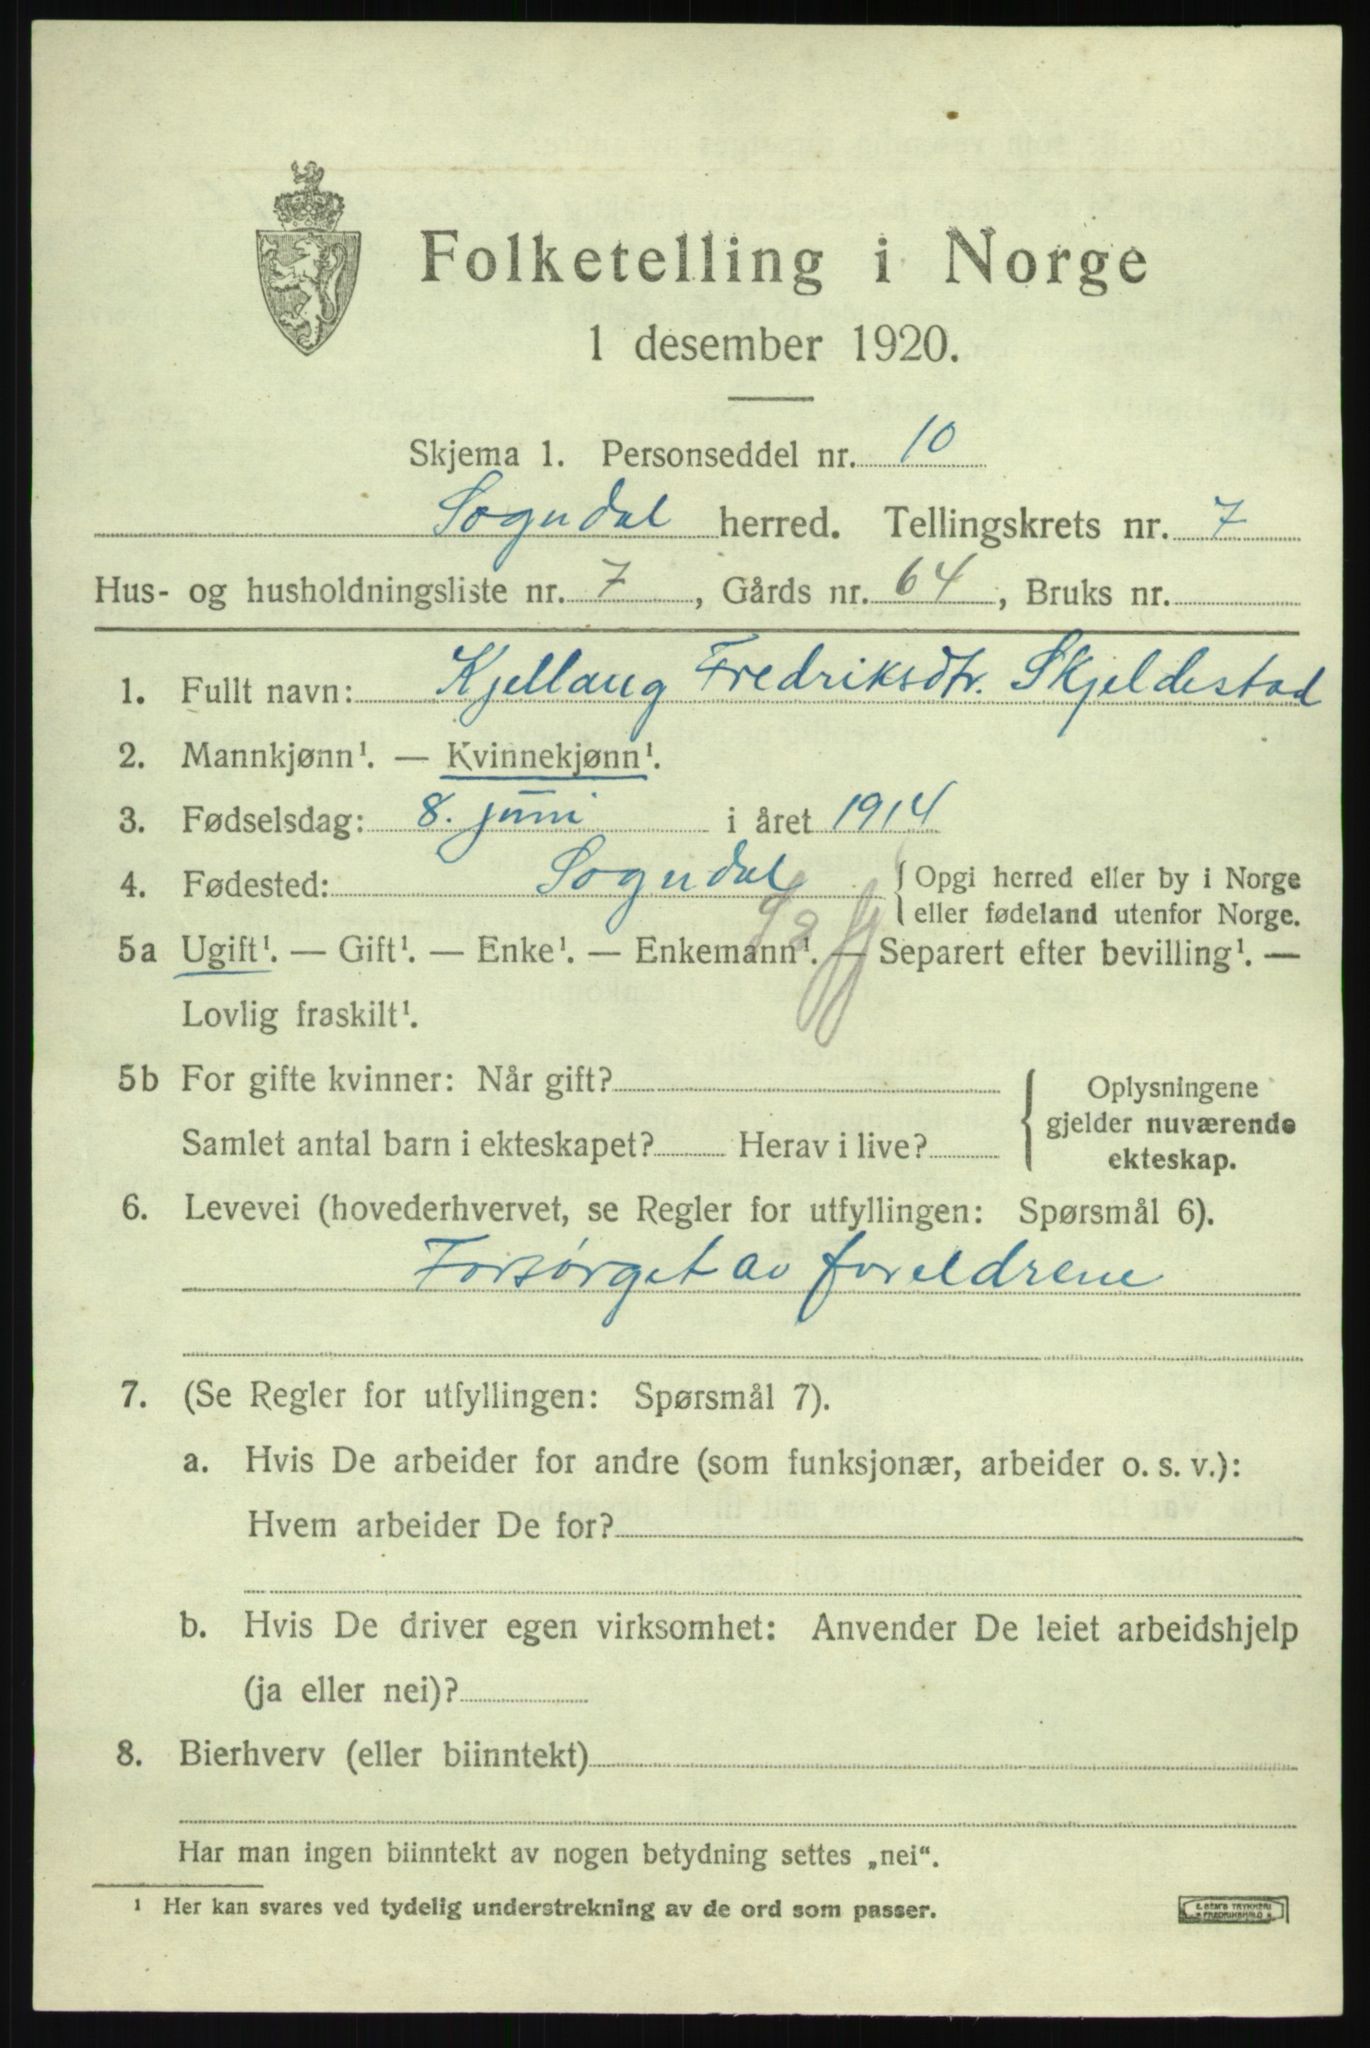 Folketelling i Norge
1 desember 1920.
Skjema 1. Personseddel nr. 10
Sogndal herred. Tellingskrets nr. 7
Hus- og husholdningsliste nr. 7, Gårds nr. 64, Bruks nr.
1. Fullt navn: Kjellaug Fredriksdtr. Skjeldestad
2. Mannkjønn¹. — Kvinnekjønn¹.
3. Fødselsdag: 8. juni i året 1914
4. Fødested: Sogndal { Opgi herred eller by i Norge
eller fødeland utenfor Norge.
5a Ugift¹. — Gift¹. — Enke¹. — Enkemann¹. — Separert efter bevilling¹. —
Lovlig fraskilt¹.
5b For gifte kvinner: Når gift?
Samlet antal barn i ekteskapet? Herav i live?
{ Oplysningene
gjelder nuværende
ekteskap.
6. Levevei (hovederhvervet, se Regler for utfyllingen: Spørsmål 6).
Forsørget av foreldrene
7. (Se Regler for utfyllingen: Spørsmål 7).
a. Hvis De arbeider for andre (som funksjonær, arbeider o. s. v.):
Hvem arbeider De for?
b. Hvis De driver egen virksomhet: Anvender De leiet arbeidshjelp
(ja eller nei)?
8. Bierhverv (eller biinntekt)
Har man ingen biinntekt av nogen betydning settes „nei“.
¹ Her kan svares ved tydelig understrekning av de ord som passer.
E. SEM'S TRYKKERI
FREDRIKSHALD